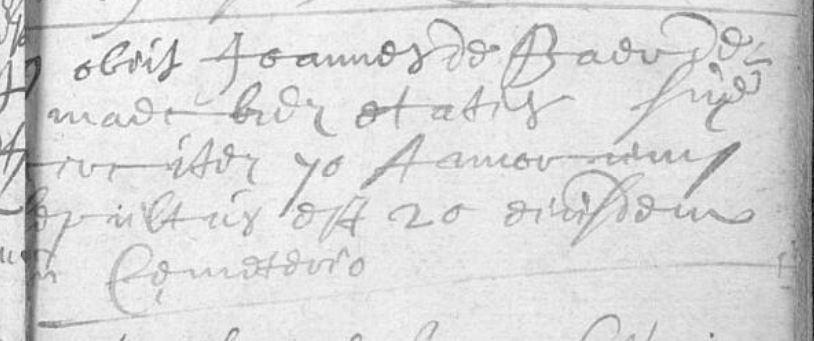 obiit Joannes de Backer de
made etatis sue
circiter 70 annorum
sepultus est 20 eiusdem
in Cemeterio